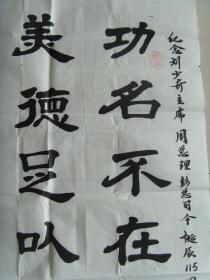 纪念刘少奇主席 周总理 彭总司令 诞辰 115
功名不在
美德足以